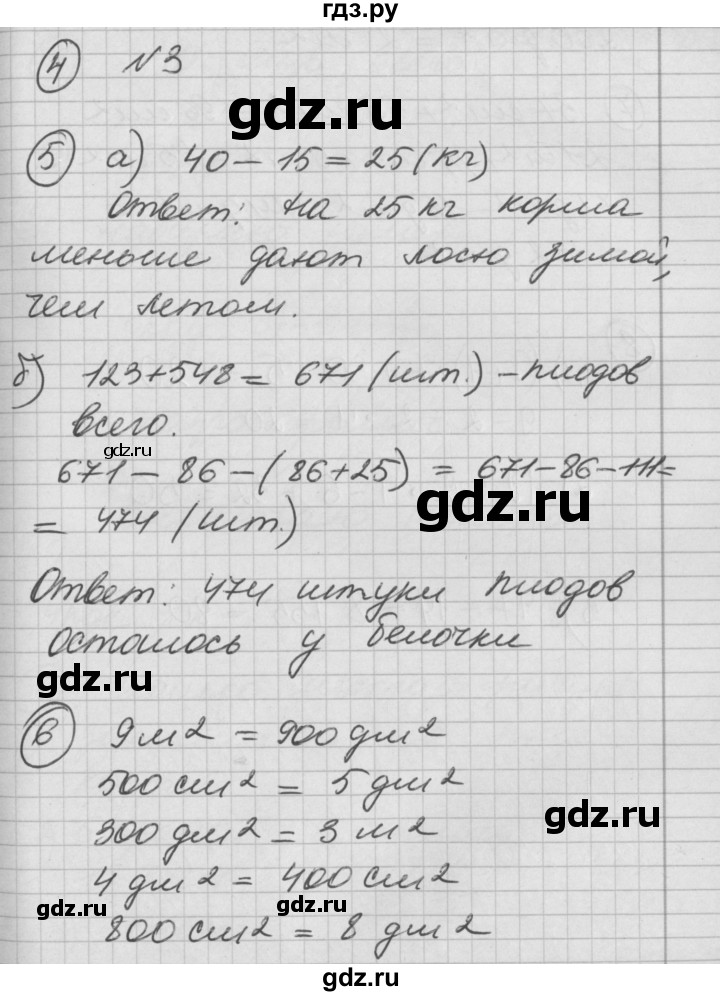 гдз.ру
④ №3
gdz.ru
⑤ а) 40 - 15 = 25 (кг)
Ответ: на 25 кг корма
меньше дают лосю зимой,
чем летом.
б) 123+548 = 671 (шт.) - плодов
всего.
gdz.ru
671 - 86 - (86+25) = 671-86-111=
gdz.ru
= 474 (шт.)
Ответ: 474 штуки плодов
осталось у белочки
gdz.ru
⑥ 9 м2 = 900 дм2
500 см2 = 5 дм2
gdz.ru
300 дм2 = 3 м2
4 дм2 = 400 см2
gdz.ru gdz.ru
800 см2 = 8 дм2
gdz.ru